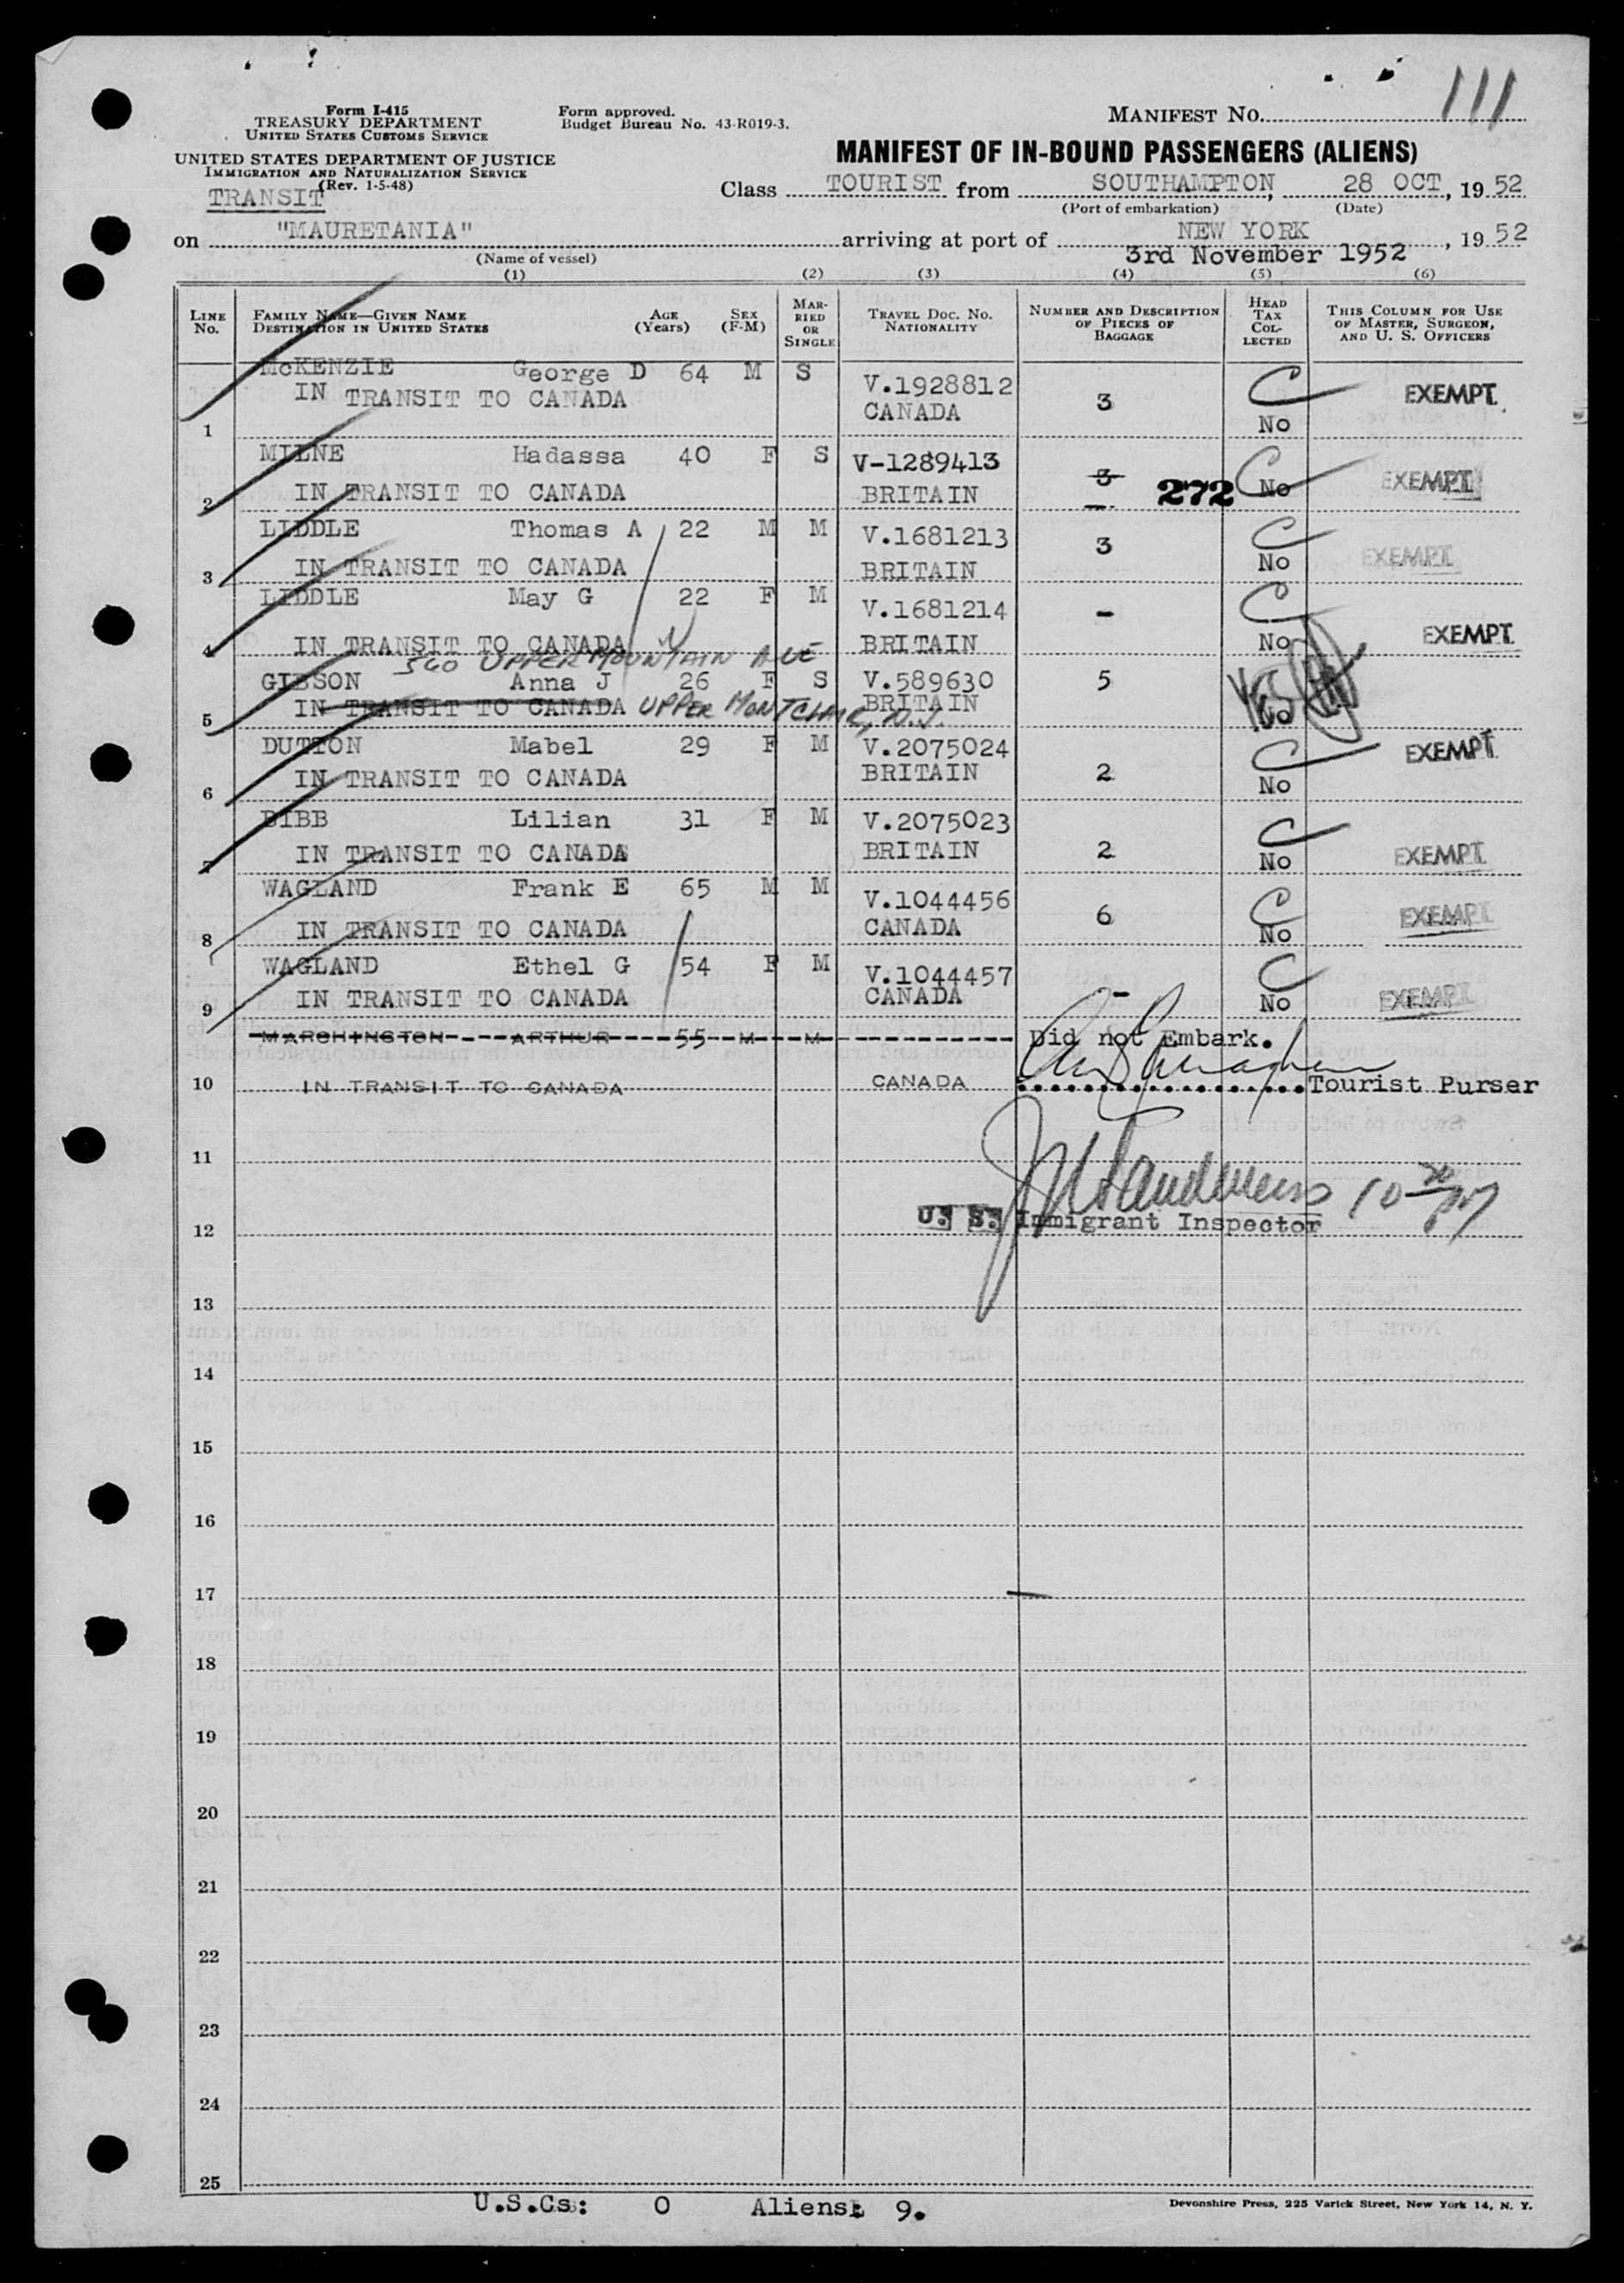 111
Form I-415
TREASURY DEPARTMENT
UNITED STATES CUSTOMS SERVICE
Form approved.
Budget Bureau No. 43-R019-3.
MANIFEST NO.
UNITED STATES DEPARTMENT OF JUSTICE
IMMIGRATION AND NATURALIZATION SERVICE
(Rev. 1-5-48)
TRANSIT
MANIFEST OF IN-BOUND PASSENGERS (ALIENS)
Class TOURIST from SOUTHAMPTON, 28 OCT, 19 52
(Port of embarkation) (Date)
on "MAURETANIA" arriving at port of NEW YORK, 19 52
(Name of vessel) 3rd November 1952
(1) (2) (3) (4) (5) (6)
LINE No. FAMILY NAME—GIVEN NAME DESTINATION IN UNITED STATES AGE (Years) SEX (F-M) MARRIED OR SINGLE TRAVEL DOC. NO. NATIONALITY NUMBER AND DESCRIPTION OF PIECES OF BAGGAGE HEAD TAX COLLECTED THIS COLUMN FOR USE OF MASTER, SURGEON, AND U. S. OFFICERS
McKENZIE George D 64 M S V.1928812 3 C EXEMPT
1 IN TRANSIT TO CANADA CANADA No
MILNE Hadassa 40 F S V-1289413 3 272 C EXEMPT
2 IN TRANSIT TO CANADA BRITAIN No
LIDDLE Thomas A 22 M M V.1681213 3 C EXEMPT
3 IN TRANSIT TO CANADA BRITAIN No
LIDDLE May G 22 F M V.1681214 - C EXEMPT
4 IN TRANSIT TO CANADA BRITAIN No
560 UPPER MOUNTAIN AVE
GIBSON Anna J 26 F S V.589630 5 Yes
5 IN TRANSIT TO CANADA UPPER MONTCLAIR, N.J. BRITAIN No
DUTTON Mabel 29 F M V.2075024 C EXEMPT
6 IN TRANSIT TO CANADA BRITAIN 2 No
BIBB Lilian 31 F M V.2075023 C
7 IN TRANSIT TO CANADA BRITAIN 2 No EXEMPT
WAGLAND Frank E 65 M M V.1044456 6 C EXEMPT
8 IN TRANSIT TO CANADA CANADA No
WAGLAND Ethel G 54 F M V.1044457 - C EXEMPT
9 IN TRANSIT TO CANADA CANADA No
MARCHINGTON ARTHUR 55 M M Did not Embark.
10 IN TRANSIT TO CANADA CANADA Tourist Purser
11
U. S. Immigrant Inspector
12
13
14
15
16
17
18
19
20
21
22
23
24
25
U.S.Cs: 0 Aliens: 9.
Devonshire Press, 225 Varick Street, New York 14, N. Y.